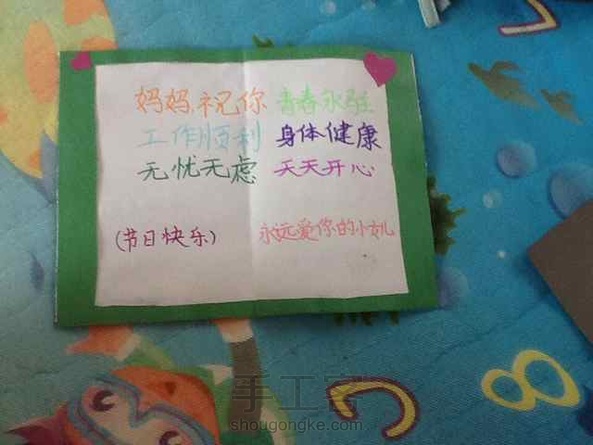 妈妈,祝你 青春永驻
工作顺利 身体健康
无忧无虑 天天开心
(节日快乐) 永远爱你的小女儿
手工客
shougongke.com